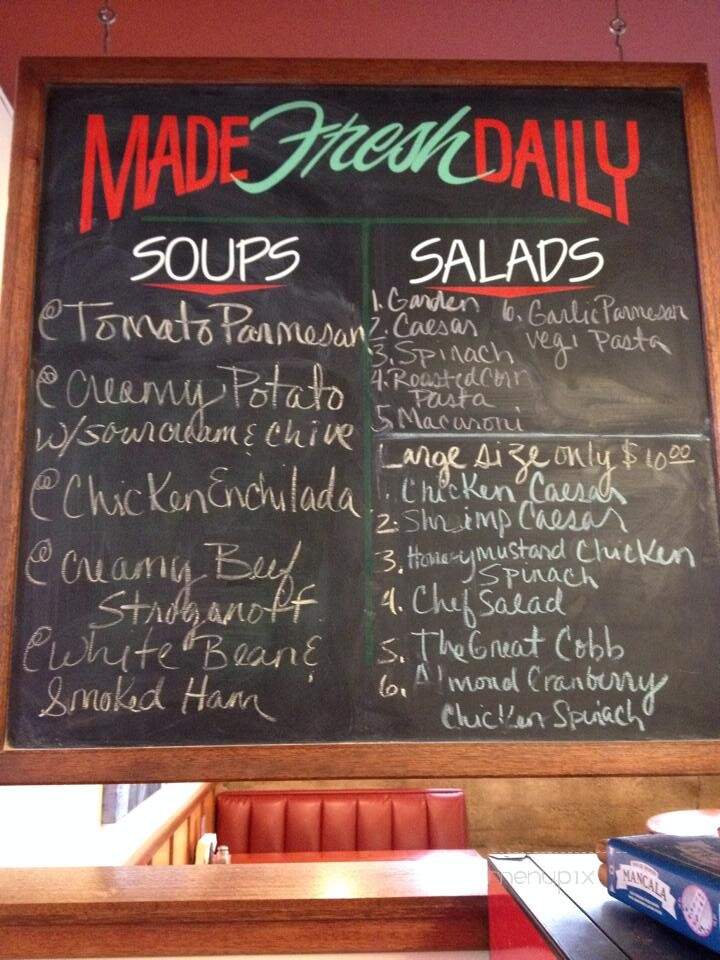 MADE Fresh DAILY
SOUPS
@ Tomato Parmesan
@ Creamy Potato
w/sourcream & Chive
@ Chicken Enchilada
@ Creamy Beef
Stroganoff
@ White Bean &
Smoked Ham
SALADS
1. Garden
2. Caesar
3. Spinach
4. Roasted Corn
Pasta
5 Macaroni
6. Garlic Parmesan
Vegi Pasta
Large Size only $10.00
1. Chicken Caesar
2. Shrimp Caesar
3. Honeymustard Chicken
Spinach
4. Chef Salad
5. The Great Cobb
6. Almond Cranberry
Chicken Spinach
menupix
MANCALA